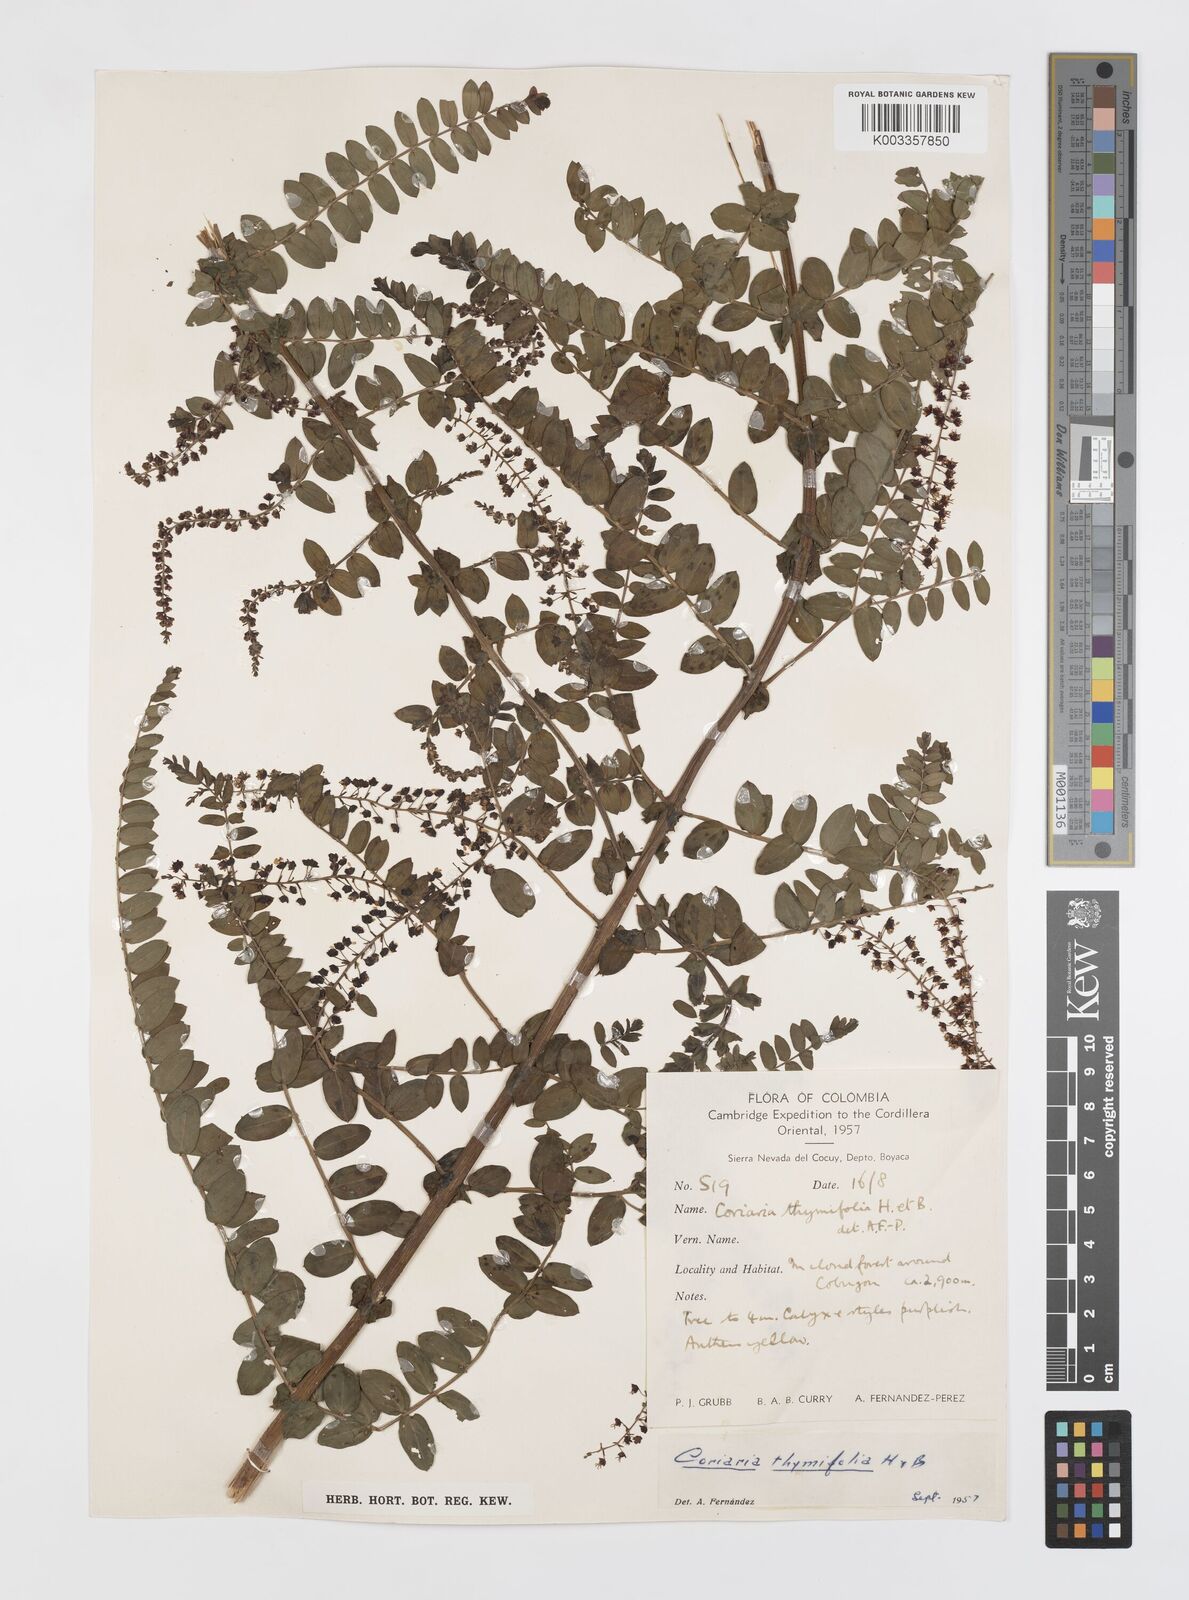 ROYAL BOTANIC GARDENS KEW
K003357850
FLORA OF COLOMBIA
Cambridge Expedition to the Cordillera
Oriental, 1957
Sierra Nevada del Cocuy, Depto, Boyaca
No. S19 Date. 16/8
Name. Coriaria thymifolia H. et B.
det. A.F.-P.
Vern. Name.
Locality and Habitat. In cloud forest around
Cobugon ca. 2,900m.
Notes.
Tree to 4m. Calyx & styles purplish.
Anthers yellow.
P. J. GRUBB B. A. B. CURRY A. FERNANDEZ-PEREZ
Coriaria thymifolia H & B
Det. A. Fernández Sept. 1957
HERB. HORT. BOT. REG. KEW.
inches
centimeters
Density
Don Williams
M001136
Kew
Royal Botanic Gardens
copyright reserved
0 1 2 3 4 5 6 7 8 9 10
cm